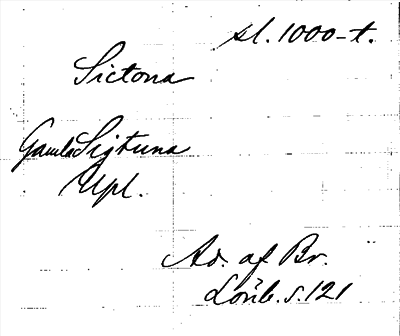 sl. 1000-t.
Sictona
Gamla Sigtuna
Upl.
Ad. af Br.
s. 121